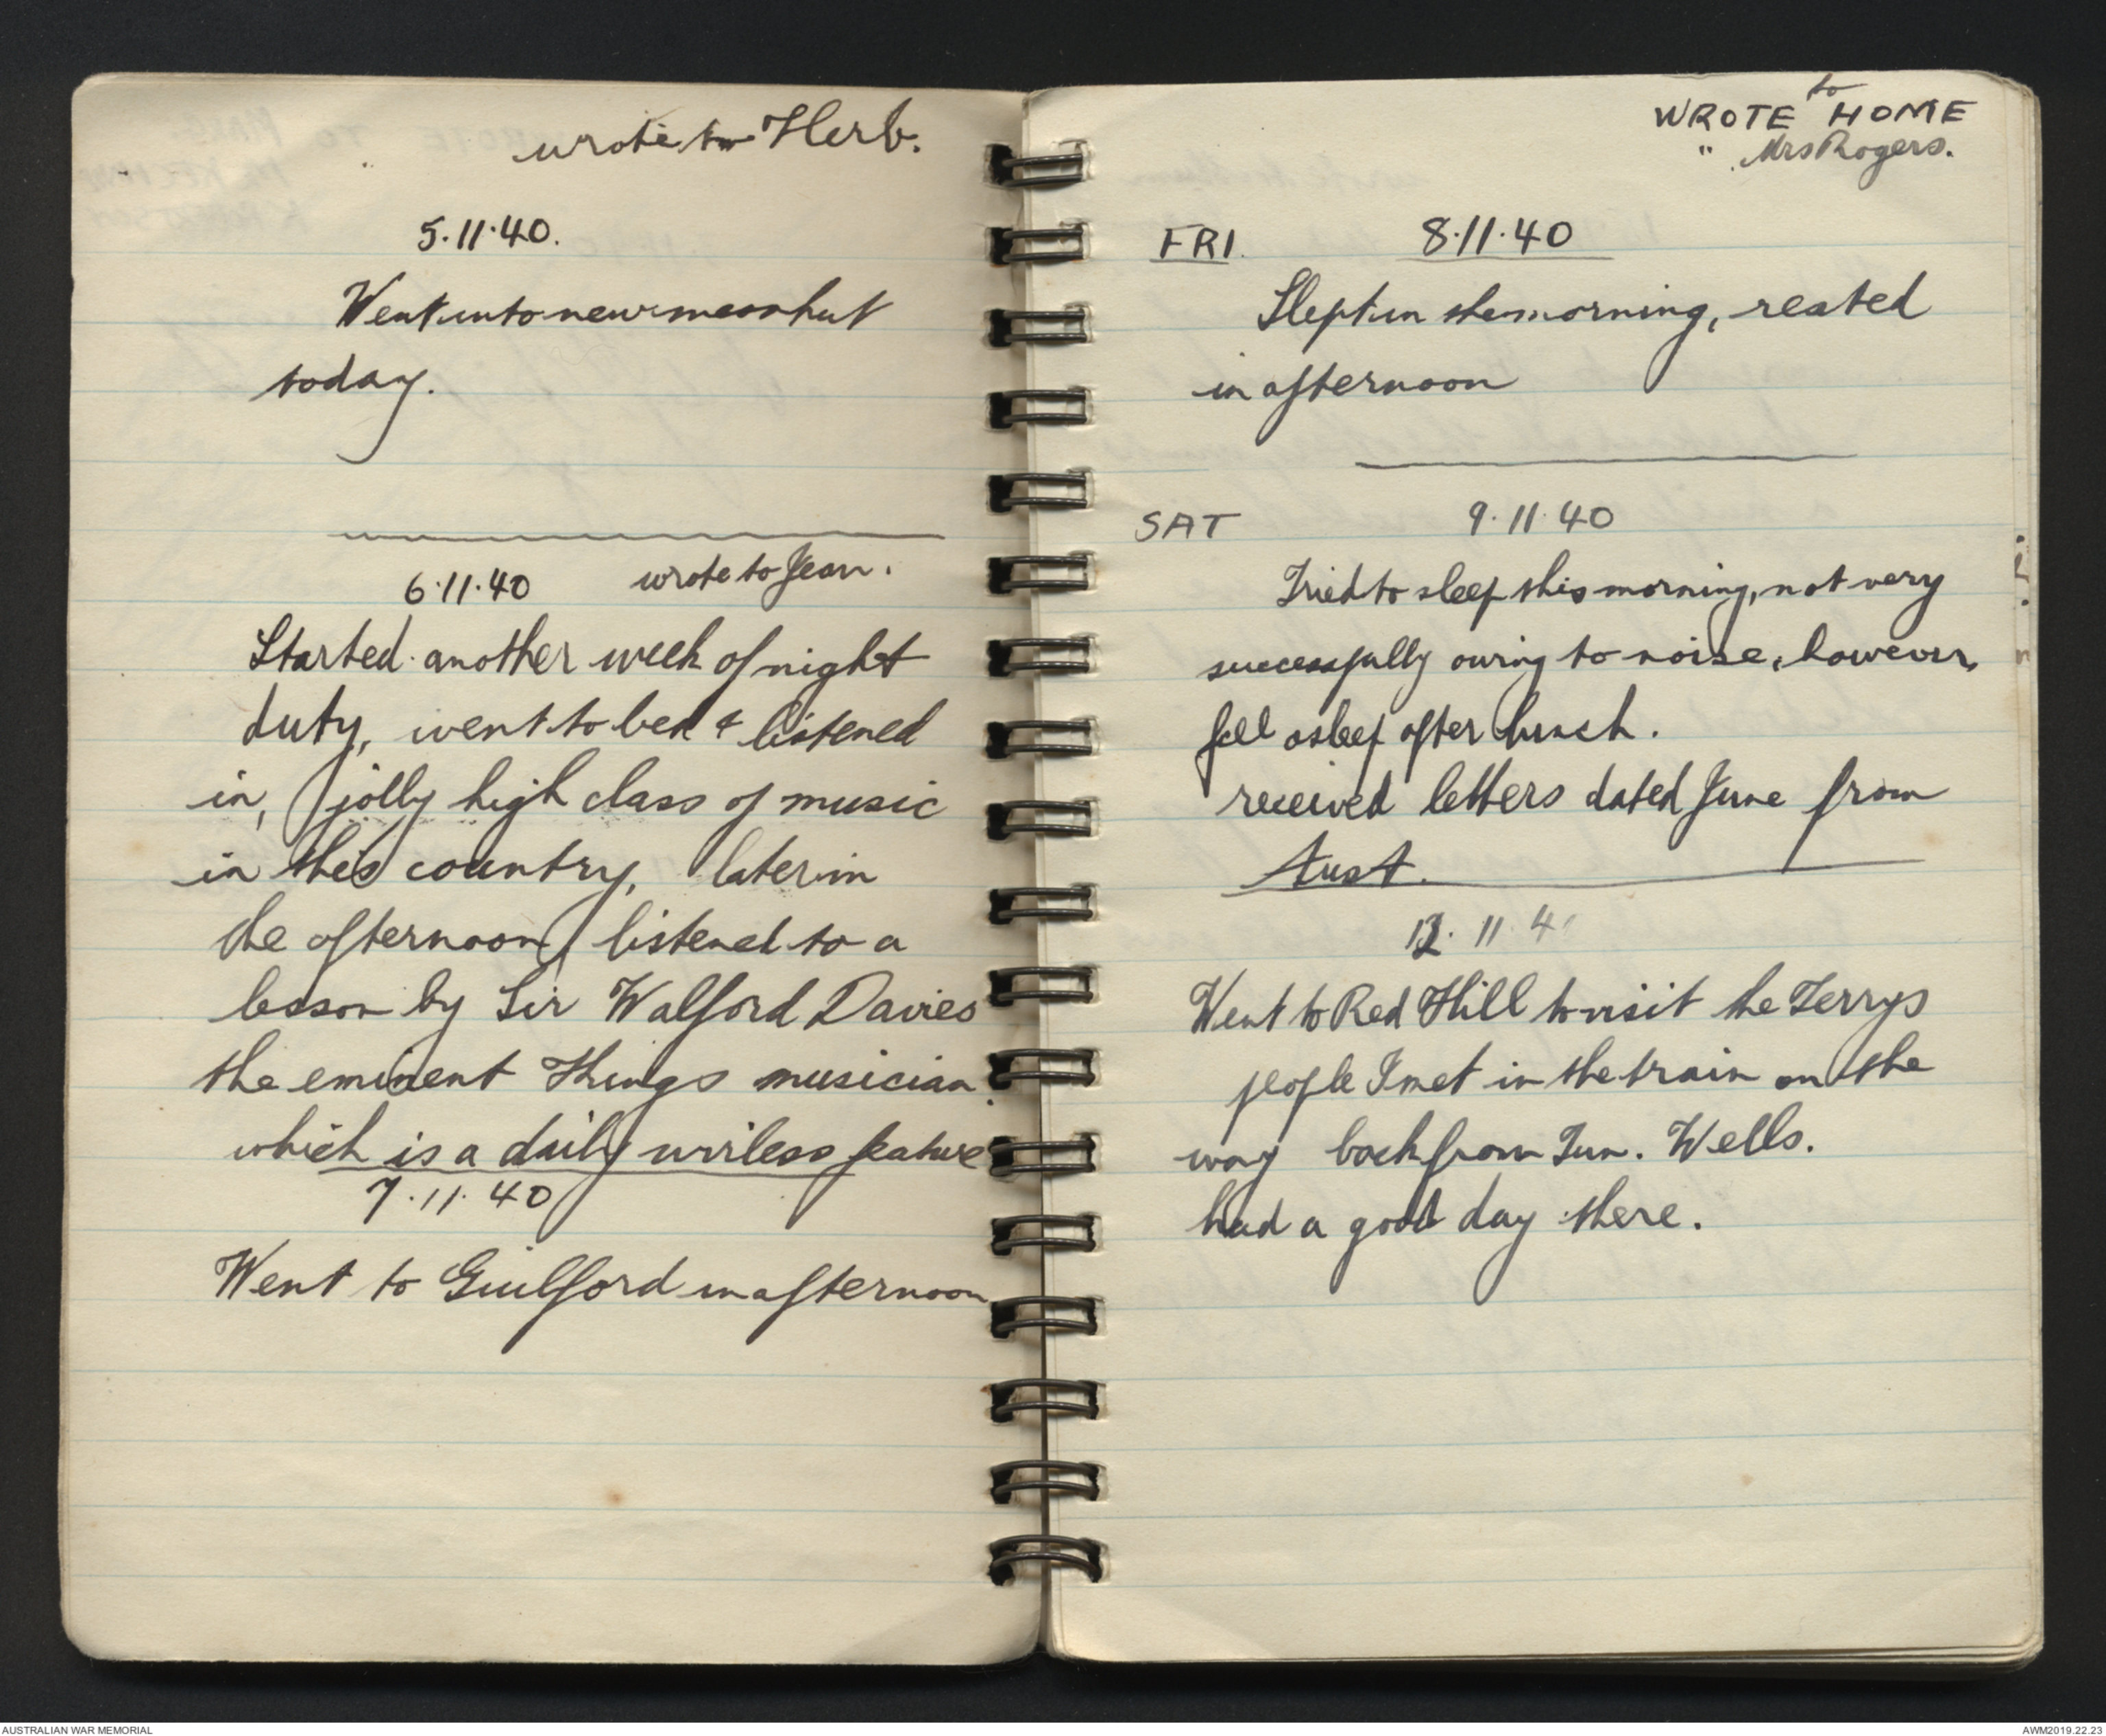 wrote to Herb.
5.11.40.
Went into new mess hut
today.
6.11.40 wrote to Jean.
Started another week of night
duty, went to bed & listened
in, jolly high class of music
in this country, later in
the afternoon listened to a
lesson by Sir Walford Davies
the eminent Things musician
which is a daily wirless feature
7.11.40
Went to Guilford in afternoon
WROTE to HOME
" Mrs Rogers.
FRI. 8.11.40
Slept in the morning, rested
in afternoon
SAT 9.11.40
Tried to sleep this morning, not very
successfully owing to noise, however,
fell asleep after lunch.
received letters dated June from
Aust.
12.11.4
Went to Red Hill to visit the Terrys
people I met in the train on the
way back from Tun. Wells.
had a good day there.
AUSTRALIAN WAR MEMORIAL
AWM2019.22.23